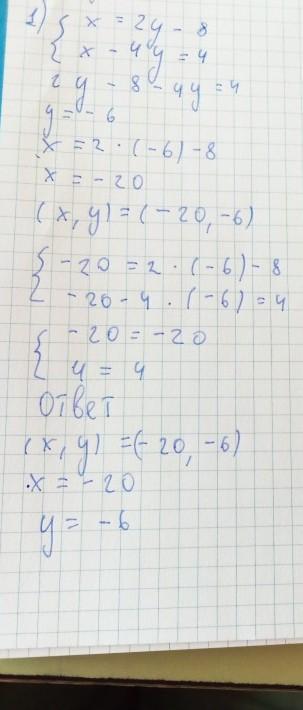 1) { x = 2y - 8
x - 4y = 4
2y - 8 - 4y = 4
y = - 6
x = 2 · (-6) - 8
x = - 20
(x, y) = (-20, -6)
{ -20 = 2 · (-6) - 8
-20 - 4 · (-6) = 4
{ -20 = -20
4 = 4
Ответ
(x, y) = (-20, -6)
x = - 20
y = - 6